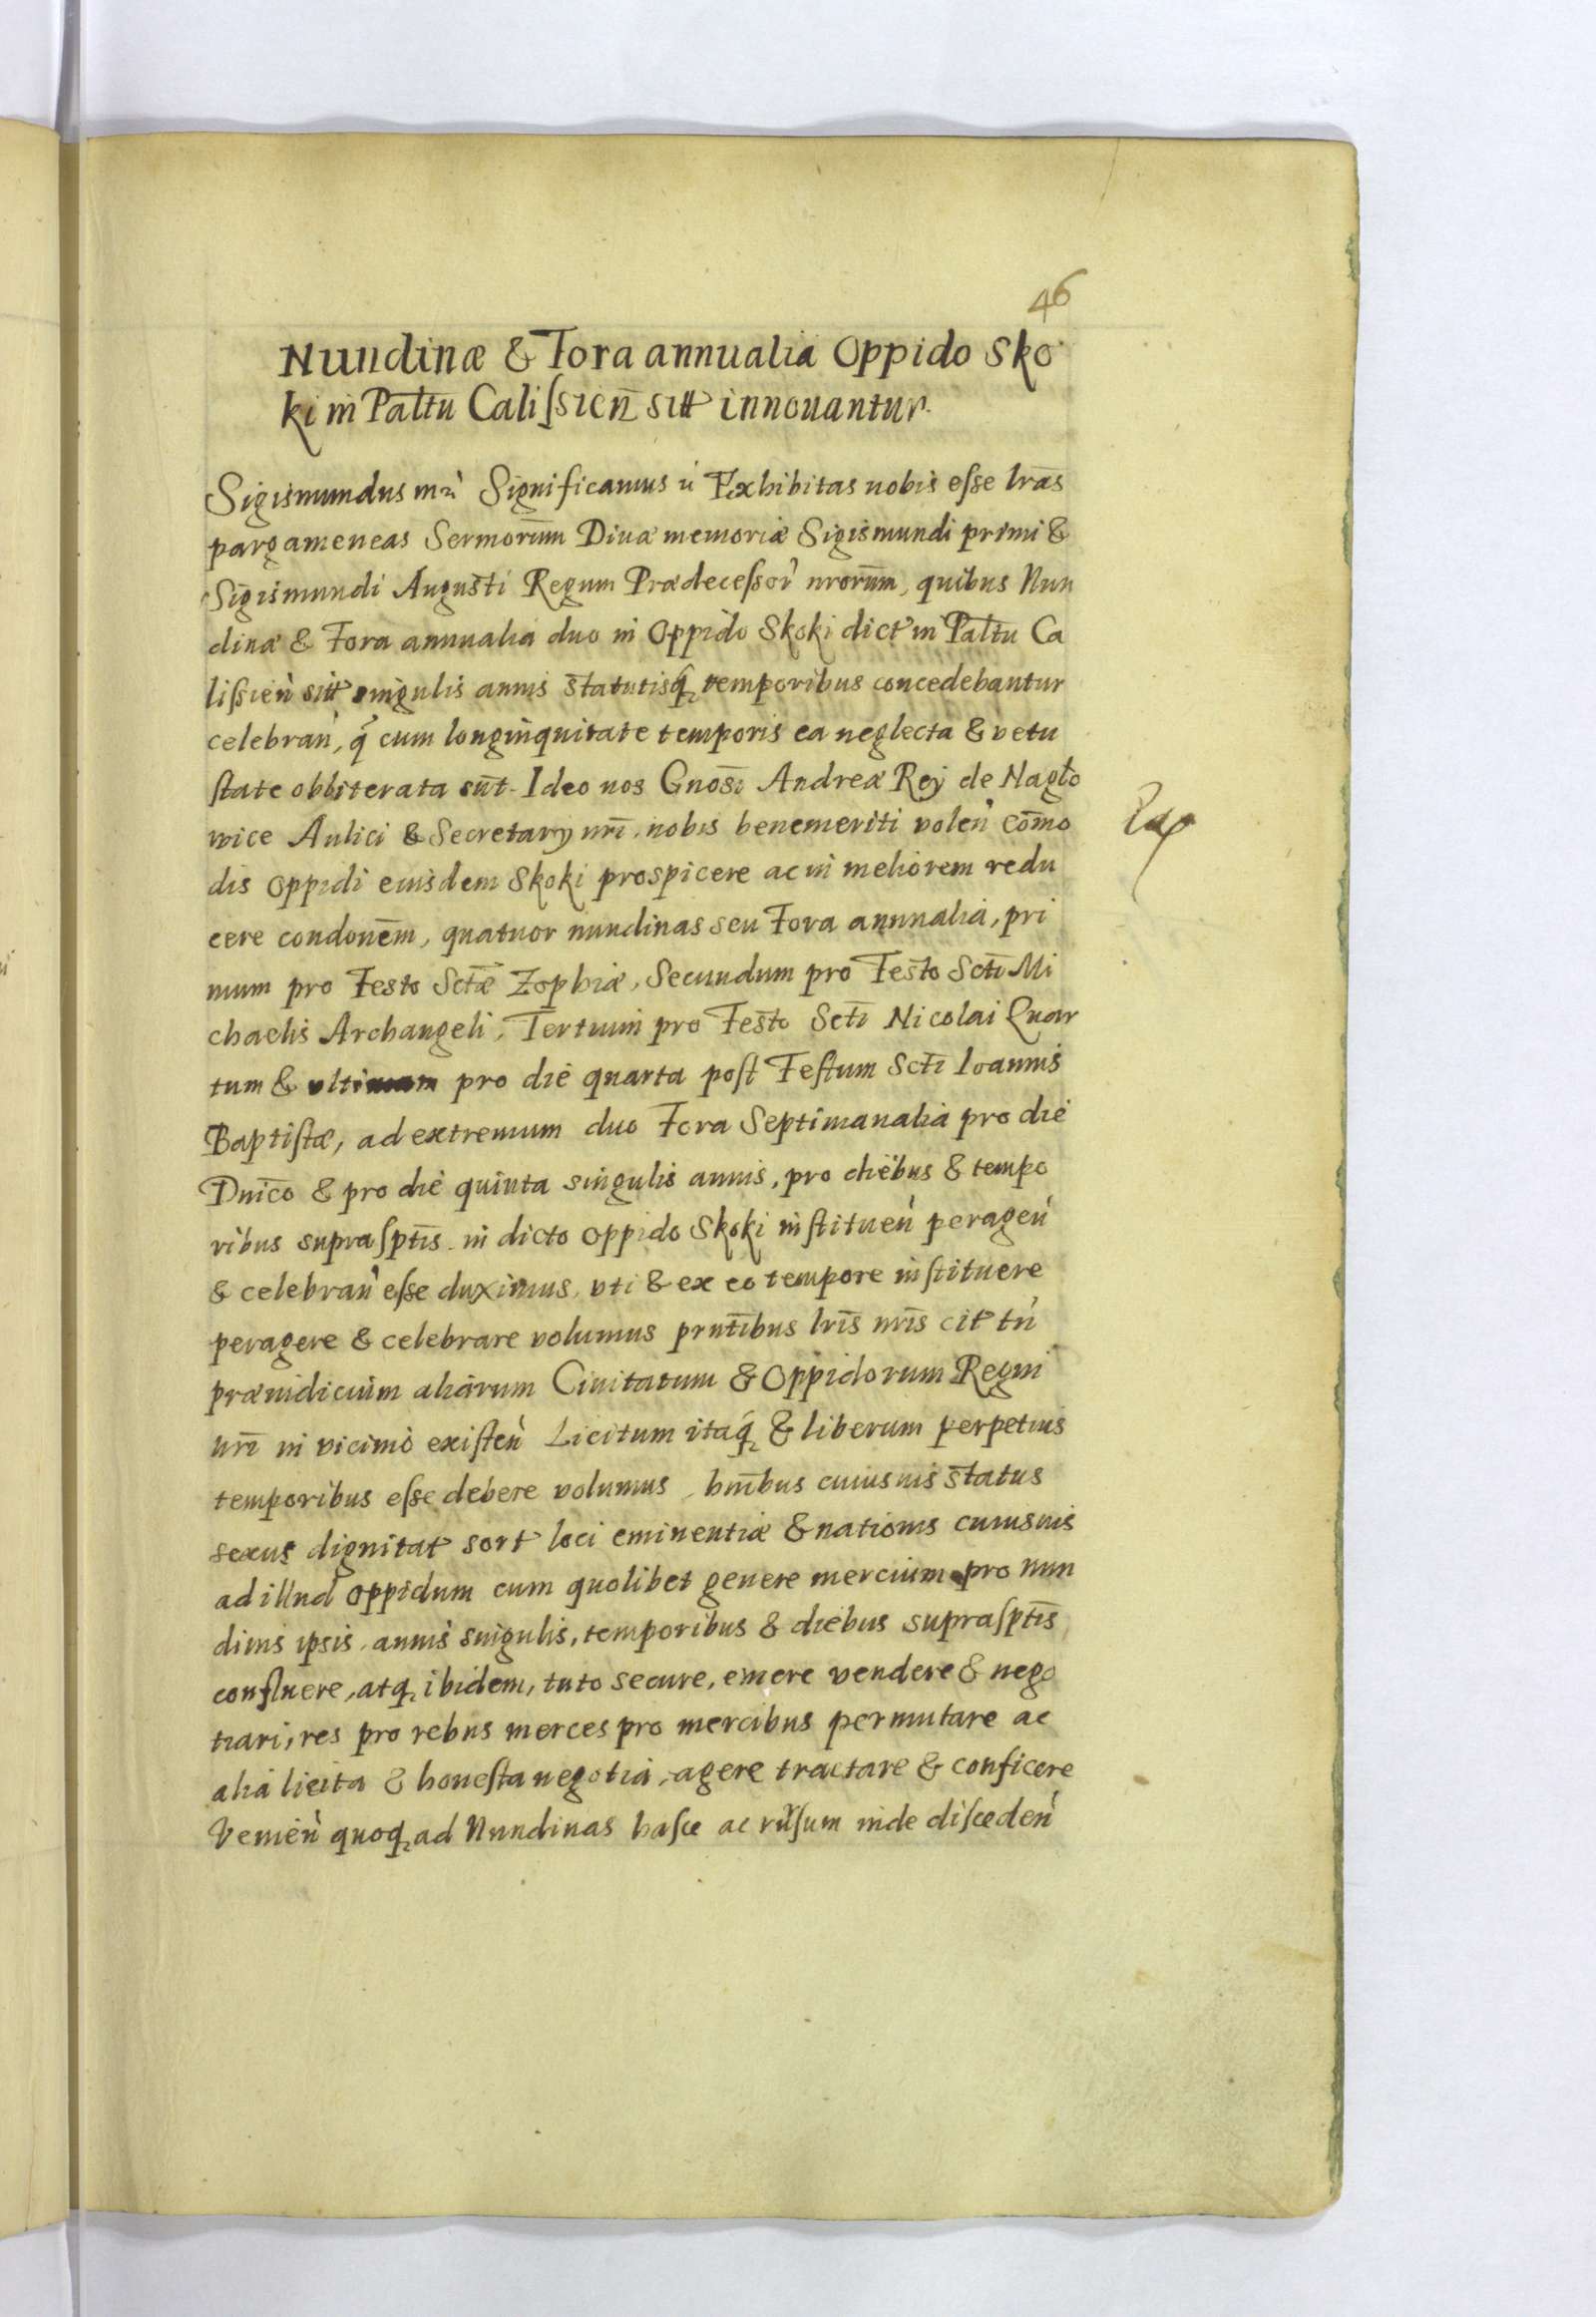 46
Nundinæ & Fora annualia Oppido Sko
ki in Paltu Calissien̄ sitt innouantur.
Sigismundus mn̄ Significamus ù Exhibitas nobis esse lrās
pargameneas Sermorūm Diuæ memoriæ Sigismundi primi &
Sigismundi Augusti Regum Prædecessor̀ nrorūm, quibus Nun
dinæ & Fora annualia duo in Oppido Skoki dict in Paltu Ca
lissien̄ sitt singulis annis statutisq́ temporibus concedebantur
celebran̄, q̄ cum longinquitate temporis ea neglecta & vetu
state obliterata sūt. Ideo nos Gnosi Andreæ Rey de Nagło
wice Aulici & Secretary nrī nobis benemeriti volen̄ com̄o
dis oppidi eiusdem Skoki prospicere ac in meliorem redu
cere condonēm, quatuor nundinas seu Fora annualia, pri
mum pro Festo Sctæ Zophiæ, Secundum pro Festo Sctī Mi
chaelis Archangeli, Tertium pro Festo Sctī Nicolai Quar
tum & ultimum pro die quarta post Festum Sctī Ioannis
Baptistæ, ad extremum duo Fora Septimanalia pro die
Dnico & pro die quinta singulis annis, pro diebus & tempo
ribus suprasptīs in dicto oppido Skoki instituen̄ peragen̄
& celebran̄ esse duximus, vti & ex eo tempore instituere
peragere & celebrare volumus prntībus lrīs nrīs cit tn̄
præiudicium aliarum Ciuitatum & Oppidorum Regni
nrī in vicinio existen̄ Licitum itaq́ & liberum perpetuis
temporibus esse debere volumus, hmībus cuiusuis status
sexus dignitat sort loci eminentiæ & nationis cuiusuis
ad illud oppidum cum quolibet genere mercium pro nun
dinis ipsis annis singulis, temporibus & diebus suprasptīs
confluere, atq ibidem, tuto secure, emere vendere & nego
tiari, res pro rebus merces pro mercibus permutare ac
alia licita & honesta negotia, agere tractare & conficere
Venien̄ quoq ad Nundinas hasce ac rursum inde disceden̄